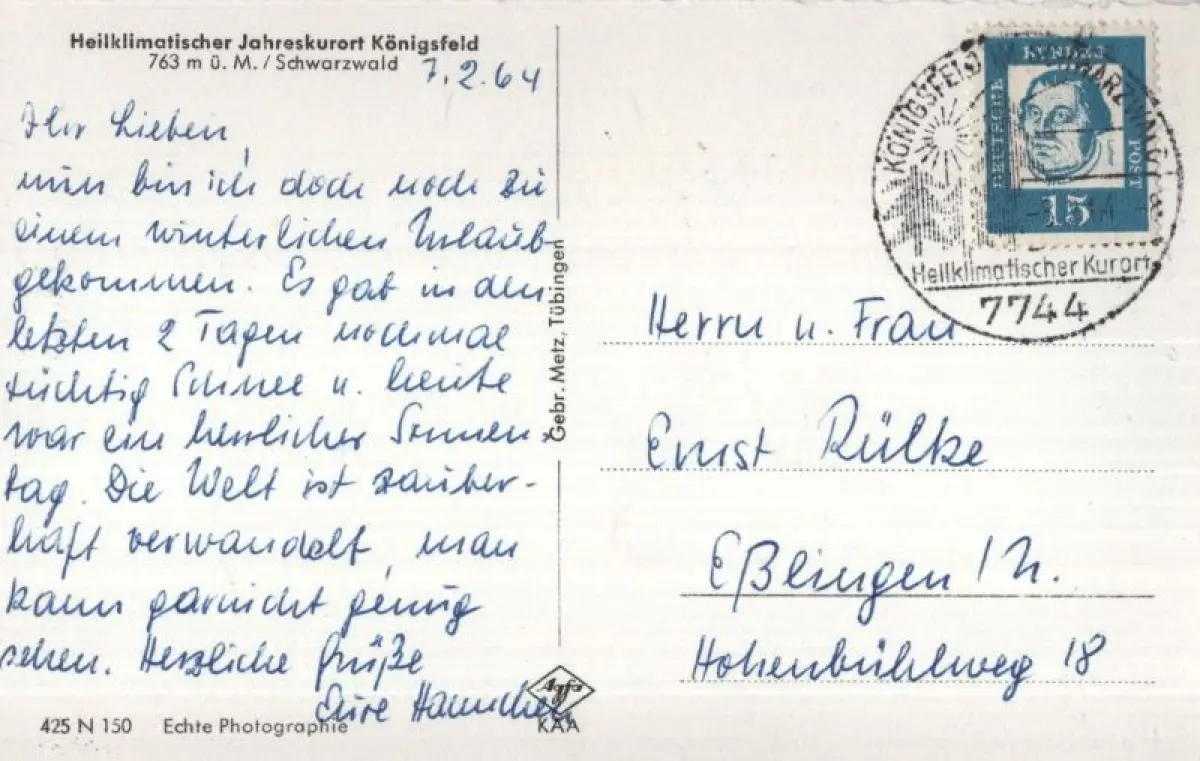 Heilklimatischer Jahreskurort Königsfeld
763 m ü. M. / Schwarzwald
7.2.64
Ihr Lieben,
nun bin ich doch noch zu
einem winterlichen Urlaub
gekommen. Es gab in den
letzten 2 Tagen nochmal
tüchtig Schnee u. heute
war ein herrlicher Sonnen-
tag. Die Welt ist zauber-
haft verwandelt, man
kann garnicht genug
sehen. Herzliche Grüße
Eure Hannchen
425 N 150 Echte Photographie
Gebr. Metz, Tübingen
Agfa
KAA
DEUTSCHE
BUNDES
POST
15
KÖNIGSFELD SCHWARZWALD
Heilklimatischer Kurort
7744
Herrn u. Frau
Ernst Rülke
Eßlingen / N.
Hohenbühlweg 18